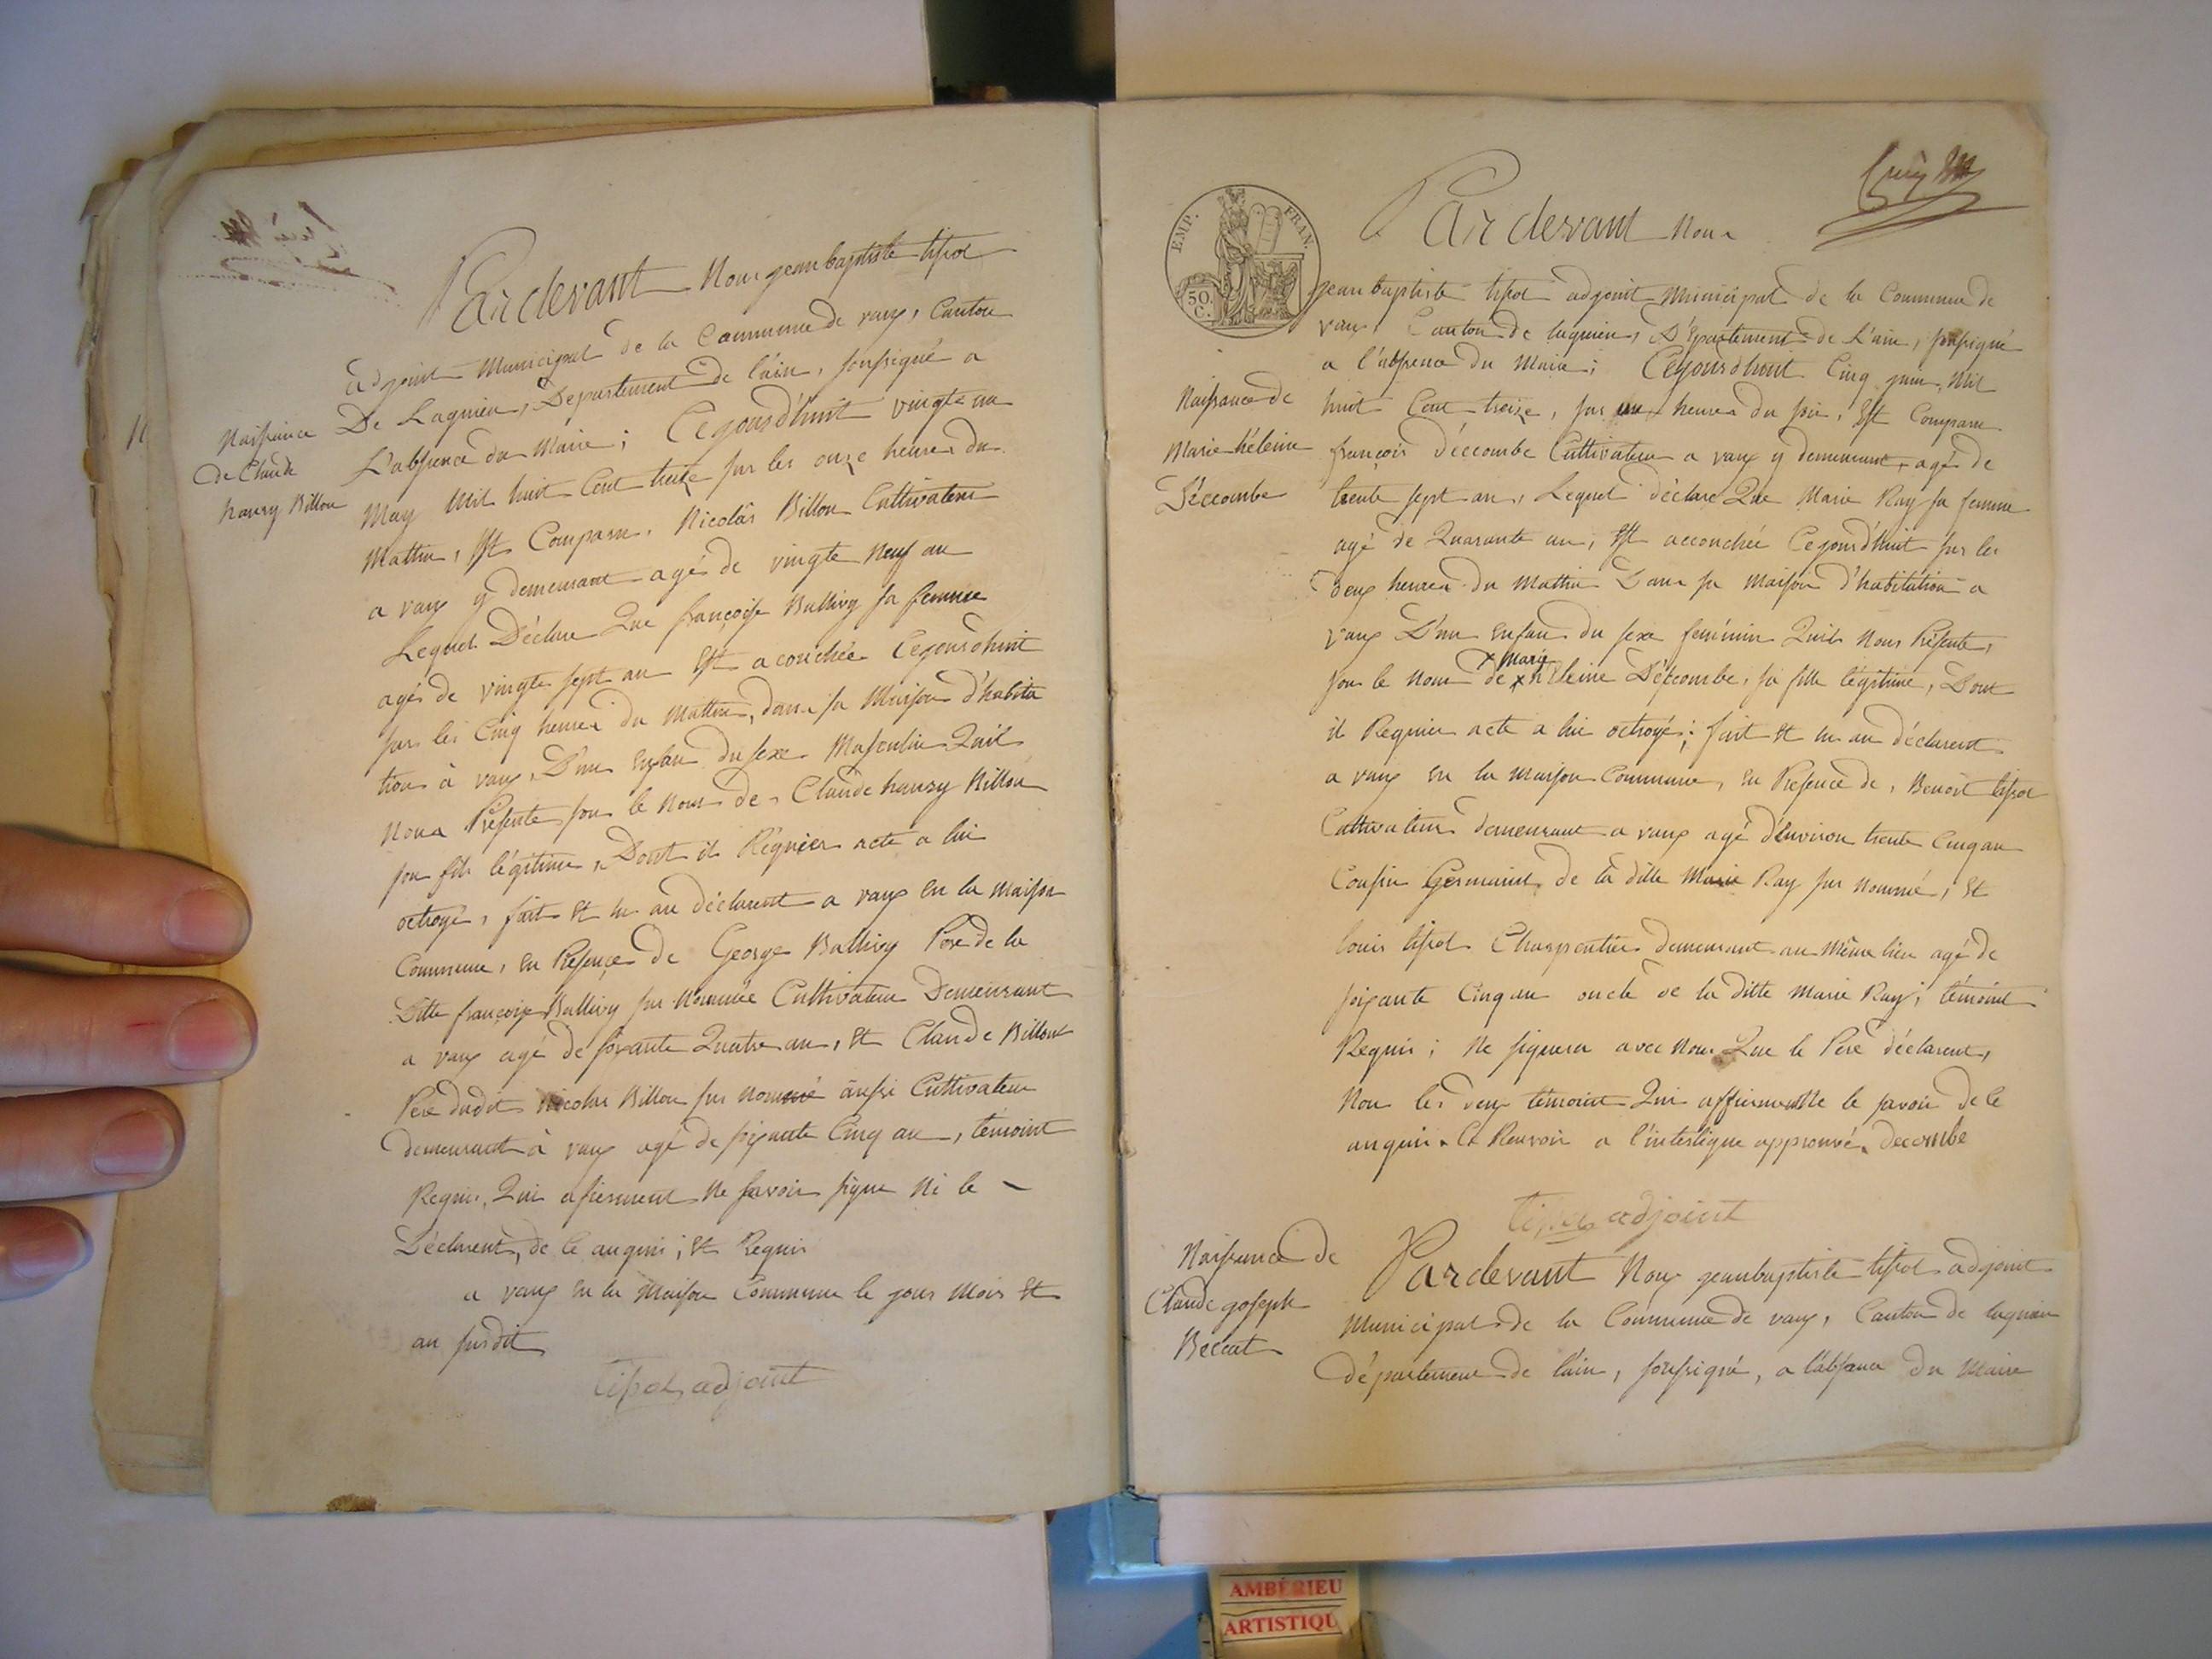 Pardevant Nous jean baptiste tissot
adjoint Municipal de la Commune de vaux, Canton
De Lagnieu, Département de l'ain, soussigné a
L'absence du Maire; Cejourdhuit vingt un
May Mil huit Cent treize sur les onze heures du
Mattin, Est Comparu, Nicolâs Billon Cultivateur
a vaux y demeurant agé de vingte neuf an
Lequel Déclare Que françoise Ballivy sa femme
agés de vingte sept an Est acouchée Cejourdhuit
sur les Cinq heures du mattin, dans sa Maison d'habita
tion à vaux, D'un Enfan du sexe Masculin Quil
Nous Présente sous le nom de Claude hanry Billon
son fils légitime, Dont il Réquier acte a lui
octroyé, fait Et lu au déclarent a vaux En la Maison
Commune, En Présence de George Ballivy Père de la
Ditte françoise Ballivy sus Nommée Cultivateur Demeurant
a vaux agé de soixante Quatre an, Et Claude Billon
Père dudit Nicolas Billon sus Nommé aussi Cultivateur
demeurant à vaux agé de soixante Cinq an, témoint
Requis, Qui afirment Ne savoir signe Ni le
Déclarent, de Ce anquis; Et Requis
a vaux En la Maison Commune le jour Mois Et
an susdit
tissot adjoint
Naissance
de Claude
hanry Billon
EMP. FRAN.
50.
C.
Pardevant Nous
jean baptiste tissot adjoint Municipal de la Commune de
vaux Canton de lagnieu, Département de L'ain, soussigné
a l'absence du Maire; Cejourdhuit Cinq juin, Mil
huit Cent treize, sur heures du soir, Est Comparu
françois Déccombe Cultivateur a vaux y demeurant, agé de
trente sept an, Lequel déclare Que Marie Ray sa femme
agé de Quarante an, Est accouchée Cejourd'huit sur les
deux heures du Mattin Dans sa Maison d'habitation a
vaux D'un Enfan du sexe feminin Quil Nous Présente,
sous le Nom de x Marie héleine Déscombe, sa fille légitime, Dont
il Requier acte a lui octroyé; fait Et lu au déclarent
a vaux En la Maison Commune, En Présence de, Benoit tissot
Cultivateur demeurant a vaux agé d'Environ trente Cinq an
Cousin Germaint de la ditte Marie Ray sus nommé, Et
louis tissot Charpentier demeurant au même lieu agé de
soixante Cinq an oncle de la ditte Marie Ray; témoint
Requis; Ne signera avec Nous Que le Père déclarent,
Non les deux témoint Qui affirme Ne le savoir de Ce
anquis. Le Renvoir a l'interligne approuvé. decombe
tissot adjoint
Naissance de
Marie héleine
Déccombe
Pardevant Nous jeanbaptiste tissot adjoint
Municipal de la Commune de vaux, Canton de lagnieu
département de l'ain, soussigné, a l'absence du Maire
Naissance de
Claude joseph
Beccat
AMBÉRIEU
ARTISTIQU